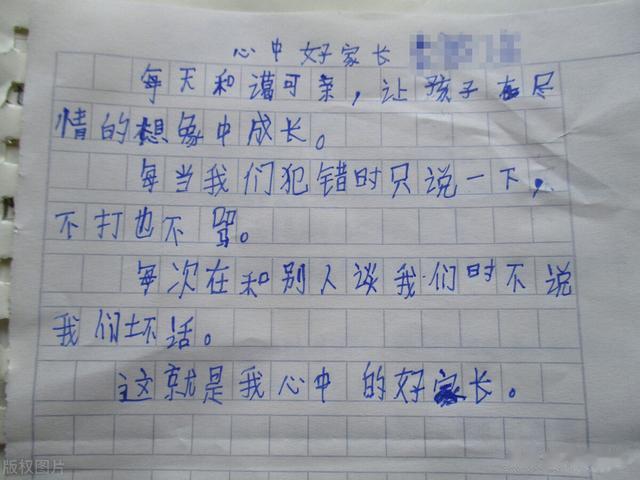 心中好家长
每天和谒可亲，让孩子在尽
情的想象中成长。
每当我们犯错时只说一下，
不打也不骂。
每次在和别人谈我们时不说
我们坏话。
这就是我心中的好家长。
版权图片